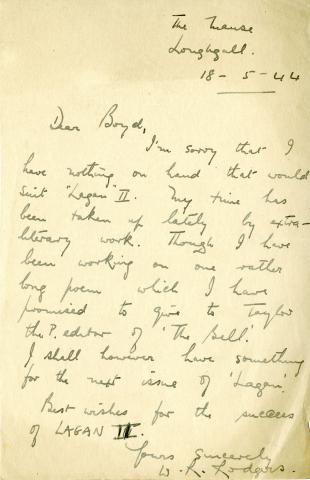 The Manse
Loughgall.
18-5-44
Dear Boyd,
I'm sorry that I
have nothing on hand that would
suit "Lagan" II. My time has
been taken up lately by extra-
literary work. Though I have
been working on one rather
long poem which I have
promised to give to Taylor
the P. editor of 'The Bell'.
I shall however have something
for the next issue of 'Lagan'.
Best wishes for the success
of LAGAN II.
Yours sincerely
W. R. Rodgers.